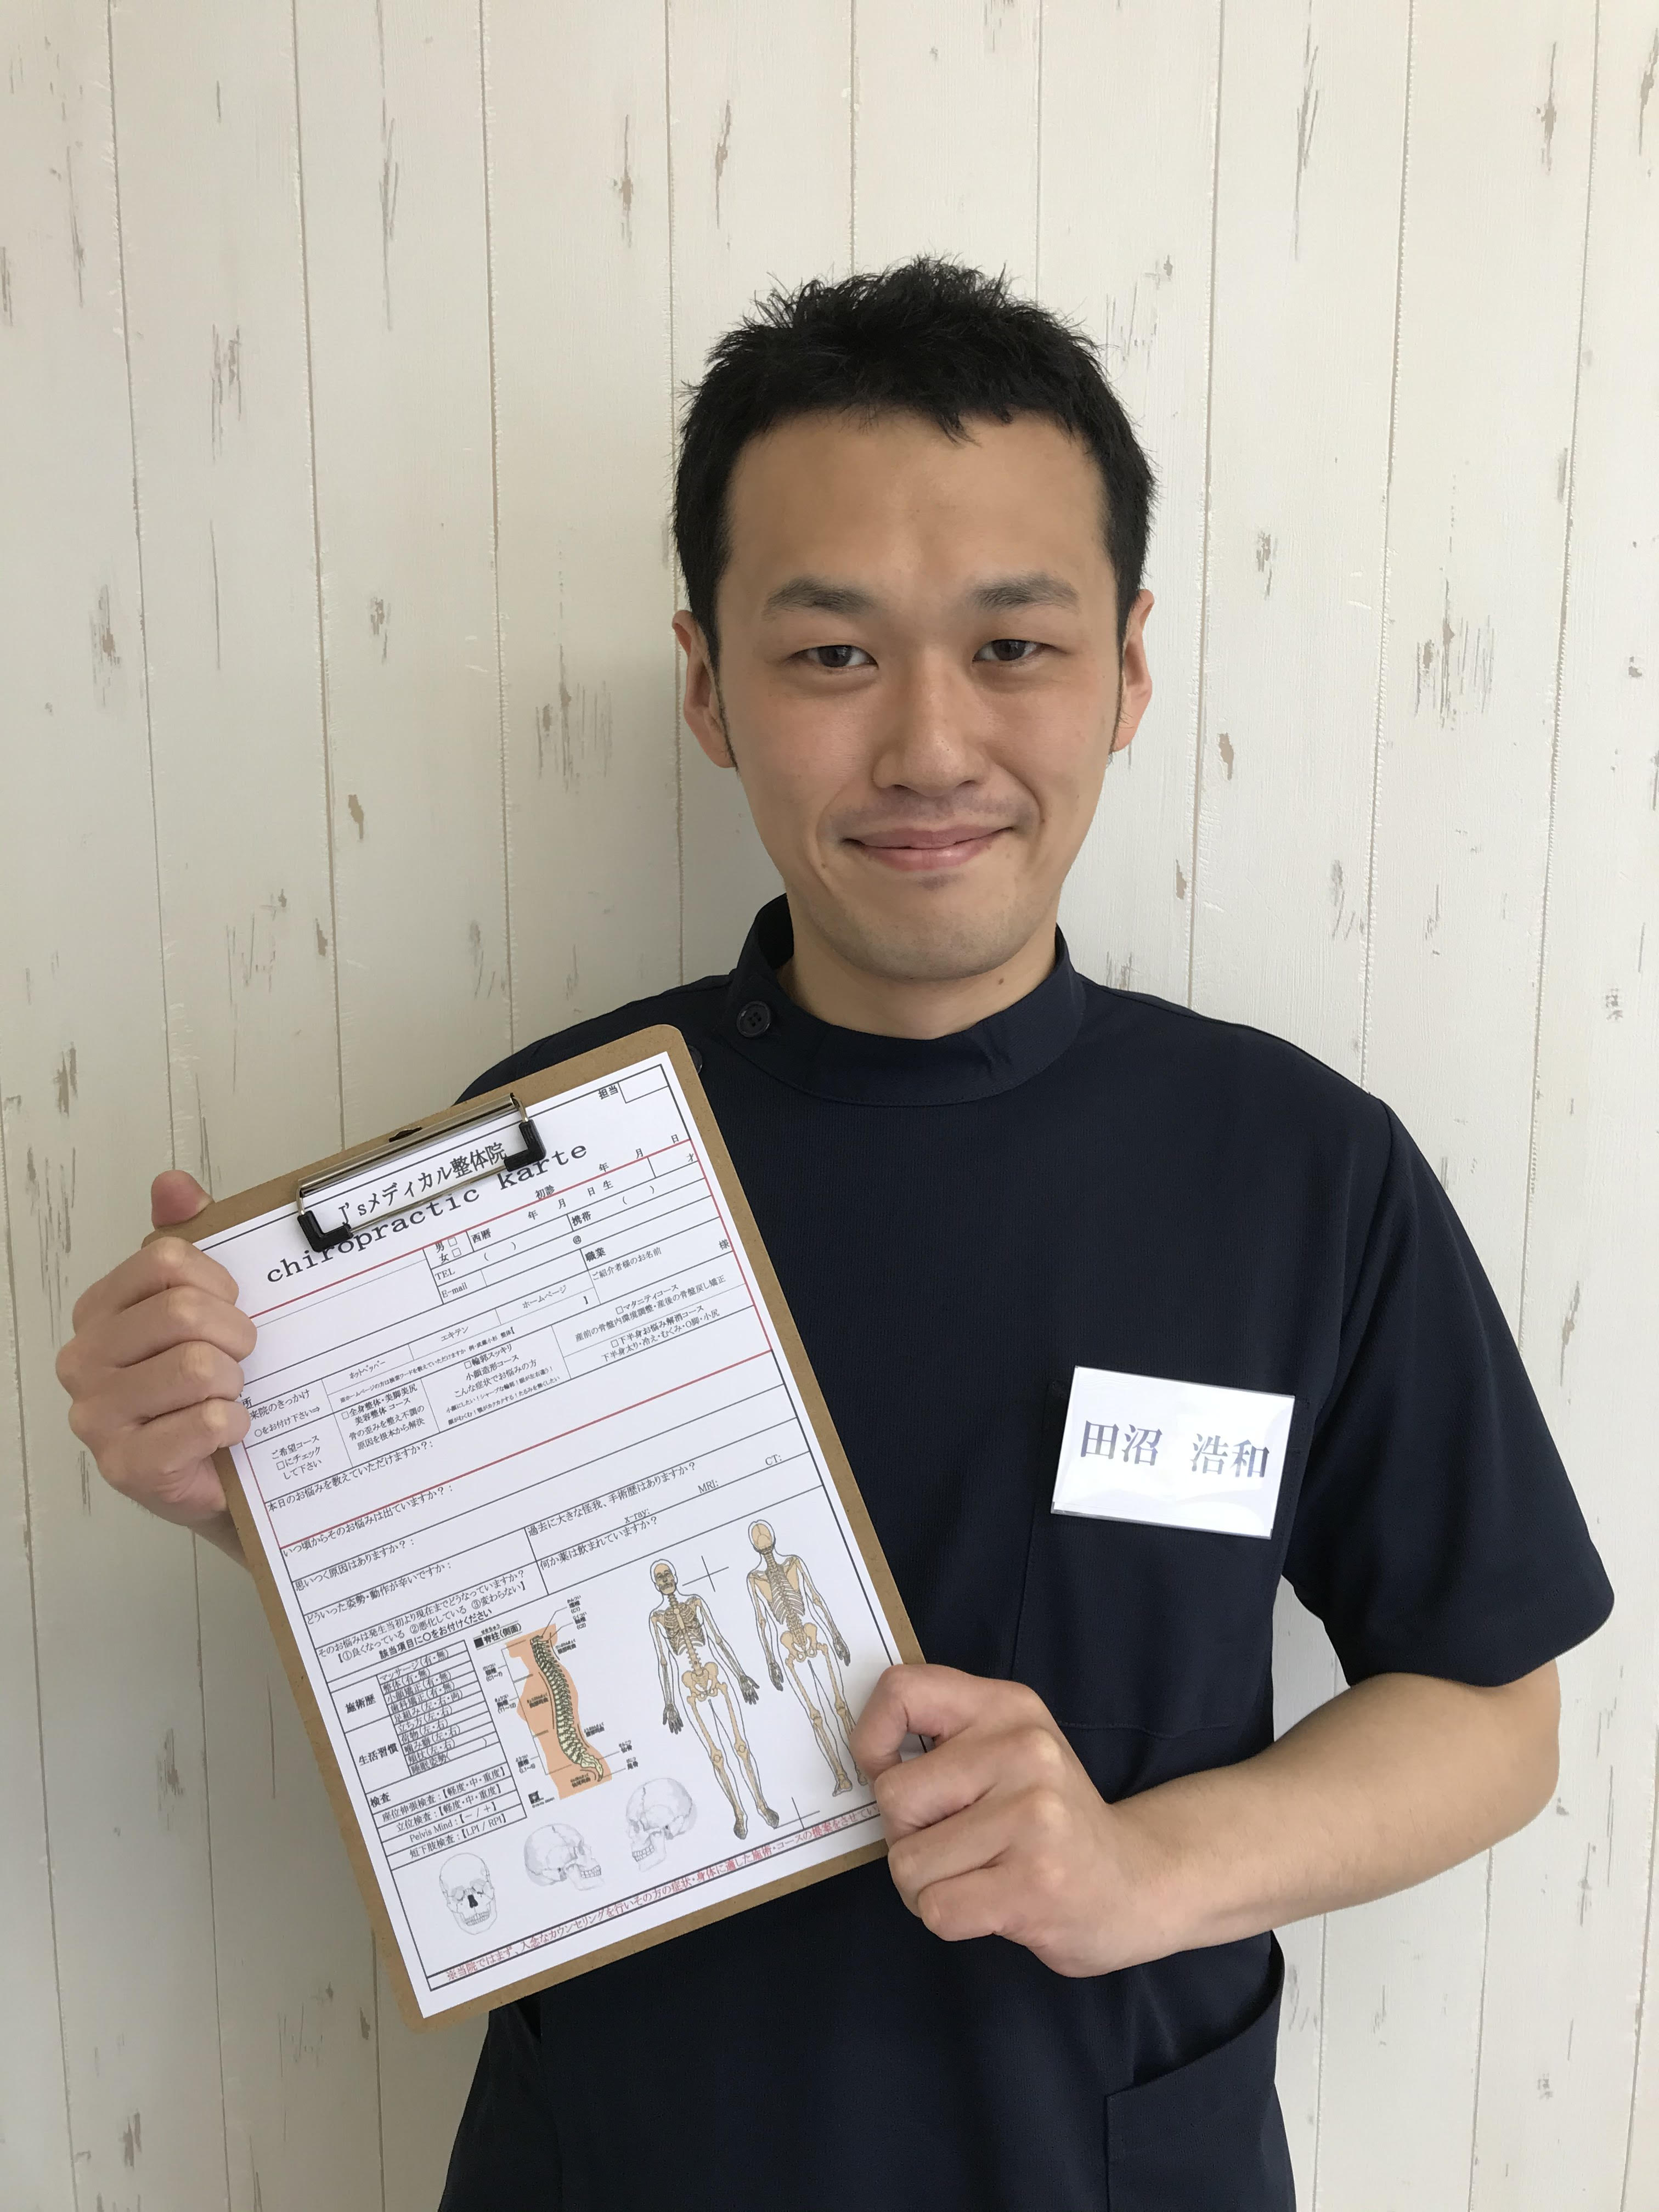 担当
J'sメディカル整体院
chiropractic karte
初診 年 月 日
男□ 西暦 年 月 日生 才
女□
TEL ( ) 携帯 ( )
E-mail @
職業
ご紹介者様のお名前 様
所
来院のきっかけ
〇をお付け下さい⇒
ホットペッパー
エキテン
ホームページ
ご希望コース
□にチェック
して下さい
□全身整体・美脚美尻
美容整体コース
骨の歪みを整え不調の
原因を根本から解決
□輪郭スッキリ
小顔造形コース
こんな症状でお悩みの方
□マタニティコース
産前の骨盤内環境調整・産後の骨盤戻し矯正
□下半身お悩み解消コース
下半身太り・冷え・むくみ・O脚・小尻
本日のお悩みを教えていただけますか？:
いつ頃からそのお悩みは出ていますか？:
思いつく原因はありますか？:
どういった姿勢・動作が辛いですか:
過去に大きな怪我、手術歴はありますか？
x-ray: MRI: CT:
何か薬は飲まれていますか？
そのお悩みは発生当初より現在までどうなっていますか？
【①良くなっている ②悪化している ③変わらない】
該当項目に〇をお付けください
施術歴
マッサージ(有・無)
整体(有・無)
小顔矯正(有・無)
歯科矯正(有・無)
生活習慣
足組み(左・右・両)
立ち方(左・右)
荷物(左・右)
噛み癖(左・右)
頬杖(左・右)
睡眠姿勢( )
検査
座位伸張検査:【軽度・中・重度】
立位検査:【軽度・中・重度】
Pelvis Mind:【－/＋】
短下肢検査:【LPI / RPI】
脊柱(側面)
※当院ではまず、入念なカウンセリングを行いその方の症状・身体に適した施術・コースの提案をさせてい
田沼 浩和